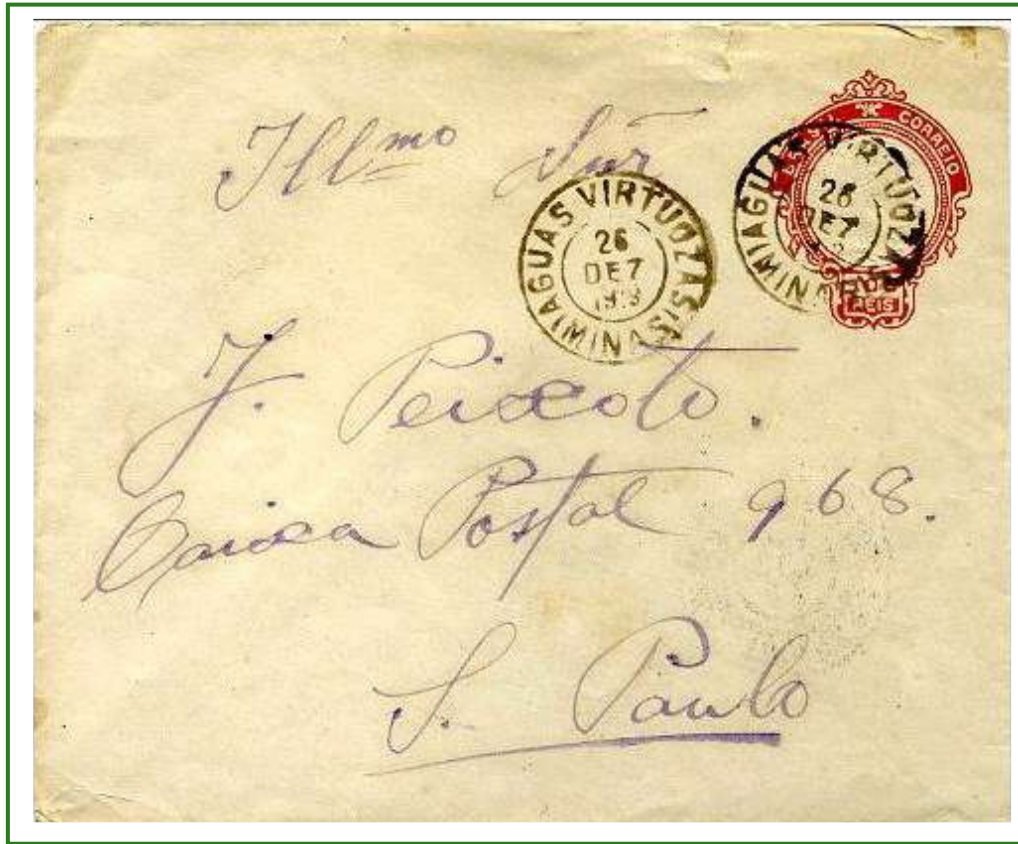 Illmo Snr
CORREIO
AGUAS VIRTUOZAS
26
DEZ
MINAS
AGUAS VIRTUOZAS
26
DEZ
MINAS
REIS
J. Peixoto.
Caixa Postal 968.
S. Paulo